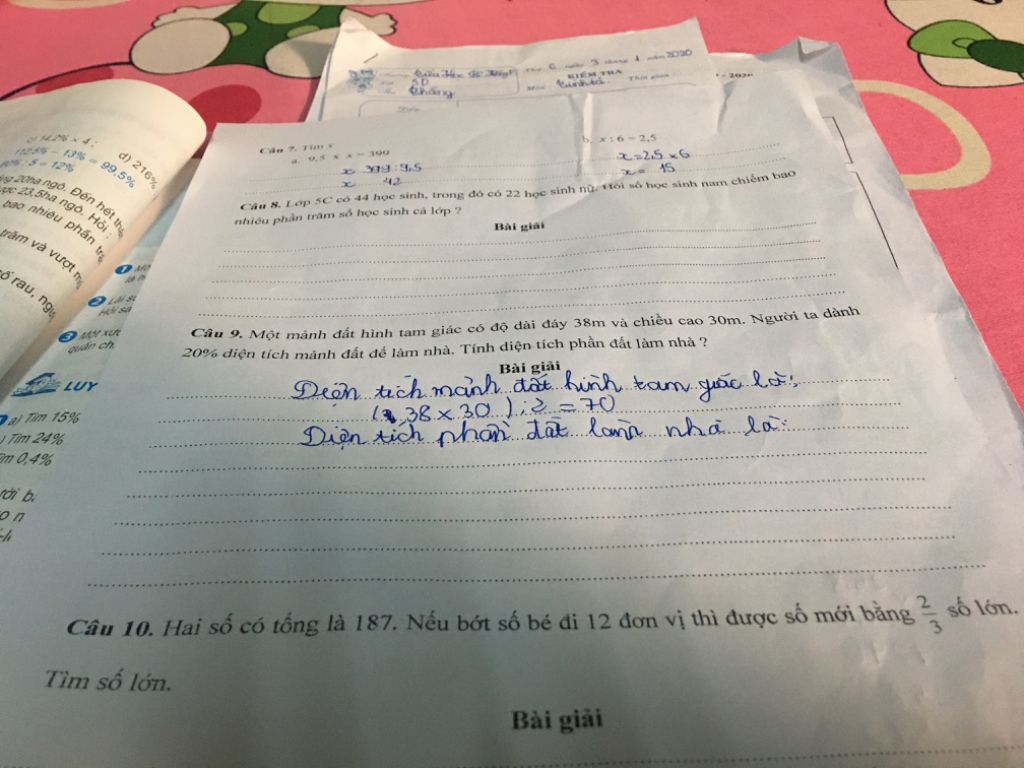 năm 2020
KIỂM TRA
Thời gian
5D
Thắng
Câu 7. Tìm x
a. 9,5 x x = 399
b. x : 6 = 2,5
x 399 : 9,5
x = 2,5 x 6
x 42
x = 15
Câu 8. Lớp 5C có 44 học sinh, trong đó có 22 học sinh nữ. Hỏi số học sinh nam chiếm bao
nhiêu phần trăm số học sinh cả lớp ?
Bài giải
Câu 9. Một mảnh đất hình tam giác có độ dài đáy 38m và chiều cao 30m. Người ta dành
20% diện tích mảnh đất để làm nhà. Tính diện tích phần đất làm nhà ?
Bài giải
Diện tích mảnh đất hình tam giác là:
( 38 x 30 ) : 2 = 70
Diện tích phần đất làm nhà là:
Câu 10. Hai số có tổng là 187. Nếu bớt số bé đi 12 đơn vị thì được số mới bằng 2/3 số lớn.
Tìm số lớn.
Bài giải
c) 14,2% x 4 ;
d) 216%
112,5% - 13% = 99,5%
60% : 5 = 12%
20ha ngô. Đến hết
23,5ha ngô. Hỏi :
bao nhiêu phần
trăm và vượt
số rau,
1
2 Lãi
Hỏi
3 Một
quần
LUY
a) Tìm 15%
Tìm 24%
0,4%